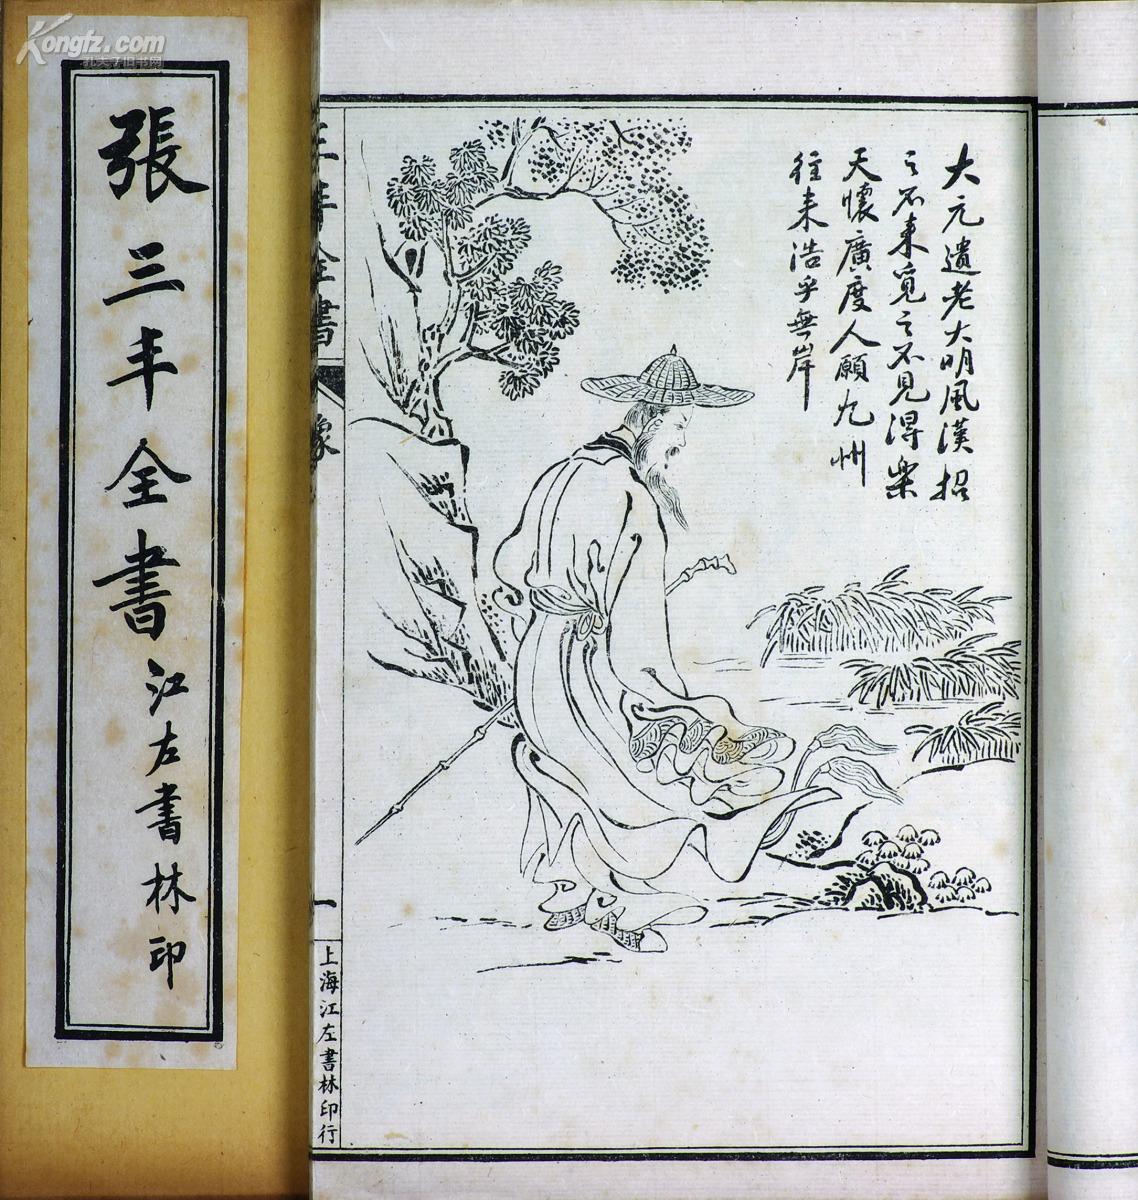 Kongfz.com
孔夫子旧书网
張三丰全書
江左書林印
大元遺老大明風漢招
之不來覓之不見得樂
天懷廣度人願九州
往來浩乎無岸
三丰全書
像
一
上海江左書林印行